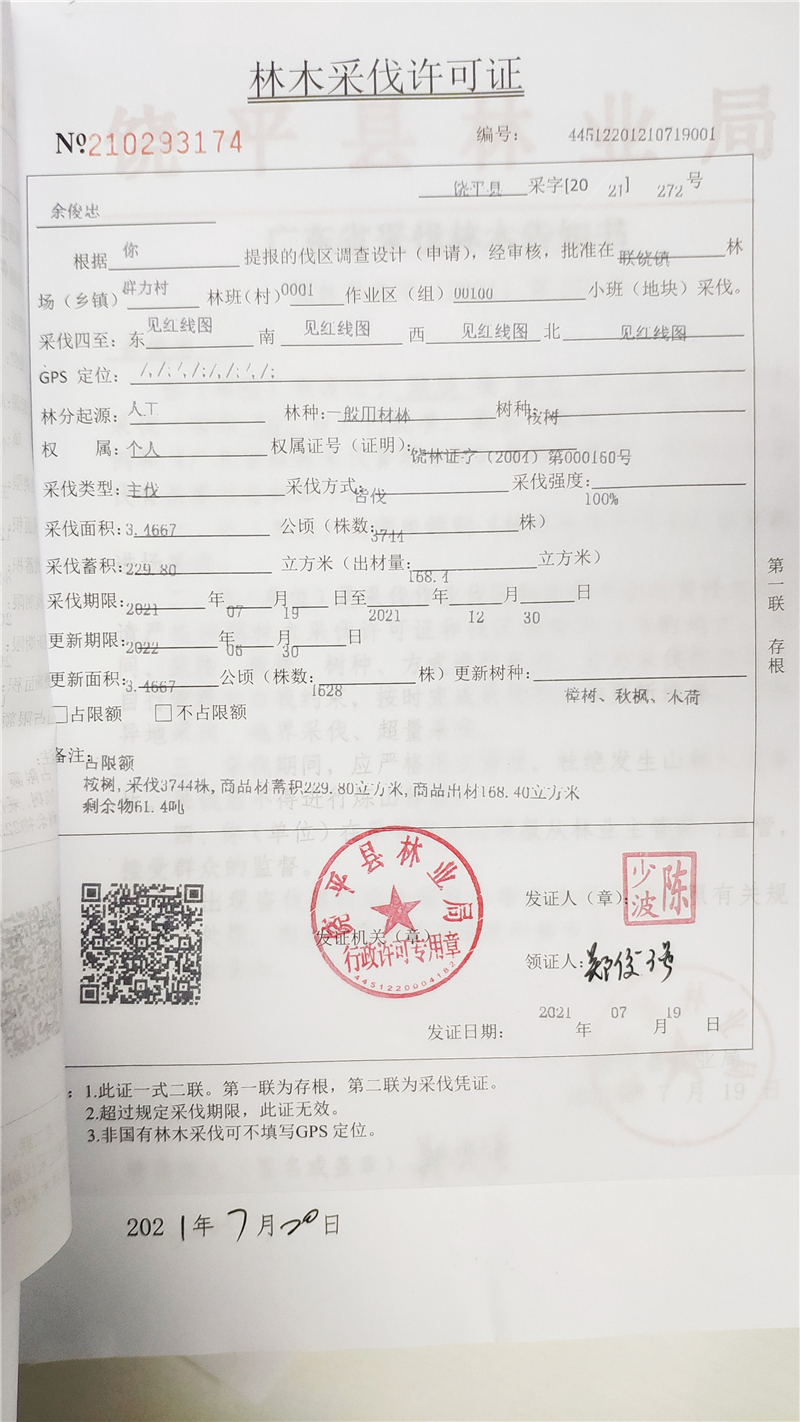 林木采伐许可证
№210293174 编号： 44512201210719001
饶平县 采字[20 21] 272号
余俊忠
根据 你 提报的伐区调查设计（申请），经审核，批准在 联饶镇 林
场（乡镇） 群力村 林班（村）0001 作业区（组）00100 小班（地块）采伐。
采伐四至：东 见红线图 南 见红线图 西 见红线图 北 见红线图
GPS 定位： /,/;/,/;/,/;/,/;
林分起源：人工 林种:一般用材林 树种:桉树
权 属：个人 权属证号（证明）:饶林证字（2004）第000160号
采伐类型:主伐 采伐方式:皆伐 采伐强度: 100%
采伐面积:3.4667 公顷（株数:3744 株）
采伐蓄积:229.80 立方米（出材量:168.4 立方米）
采伐期限:2021 年 07 月 19 日至 2021 年 12 月 30 日
更新期限:2022 年 06 月 30 日
更新面积:3.4667 公顷（株数:1628 株）更新树种: 樟树、秋枫、木荷
□占限额 □不占限额
备注: 占限额
桉树,采伐3744株,商品材蓄积229.80立方米,商品出材168.40立方米
剩余物61.4吨
第一联 存根
饶平县林业局
行政许可专用章
4451220004182
发证机关（章）
发证人（章）: 陈少波
领证人:
发证日期： 2021 年 07 月 19 日
：1.此证一式二联。第一联为存根，第二联为采伐凭证。
2.超过规定采伐期限，此证无效。
3.非国有林木采伐可不填写GPS 定位。
2021年7月20日